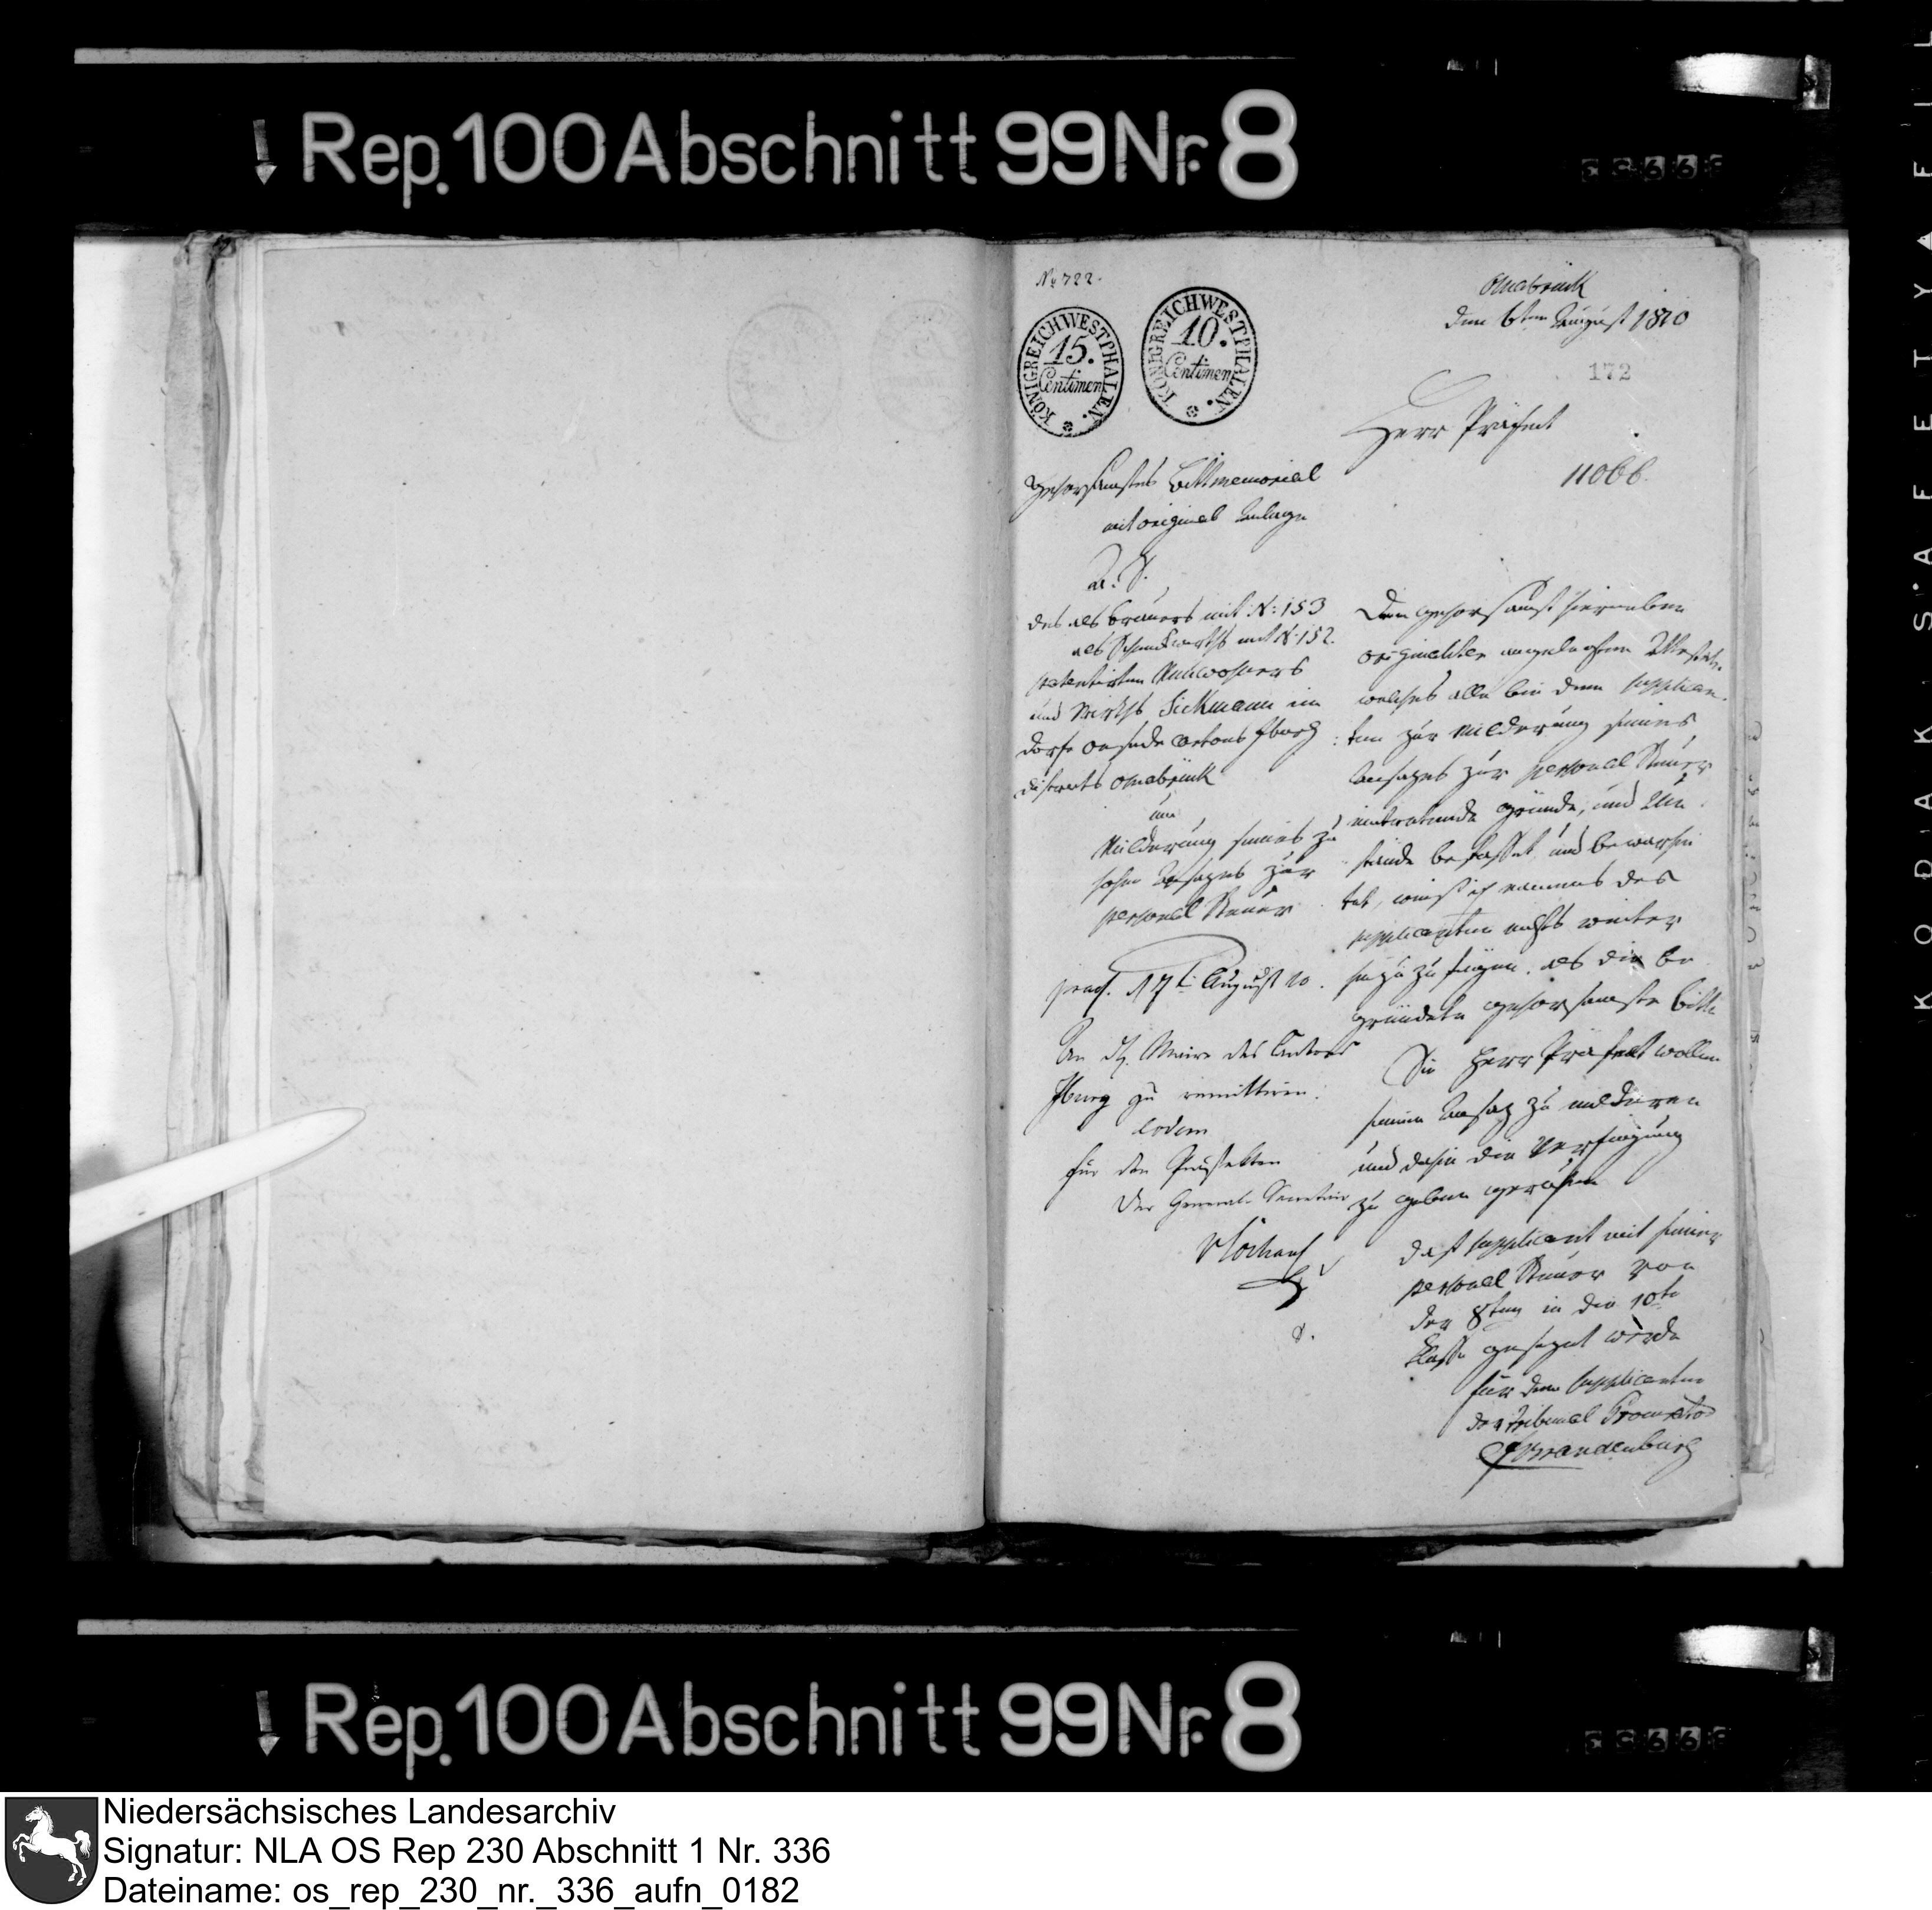 Rep. 100 Abschnitt 99 Nr. 8
No 722.
Osnabrück
den 6ten August 1810
KÖNIGREICH WESTPHALEN.
15.
Centimen
KÖNIGREICH WESTPHALEN.
10.
Centimen
172
Herr Präfect
11066.
gehorsamstes Bittmemorial
mit original Anlage
A. S.
des als Brauers mit N: 153
als Schenkwirths mit N. 152.
patentirten Einwohners
und Wirths Sickmann im
Dorfe Oesede Cantons Iburg
Districts Osnabrück
um
Milderung seines zu
hohen Ansazes zur
personal Steuer
praes. 17t August 10.
An den Maire des Cantons
Iburg zu remittiren.
eodem
für den Präfekten
Der General-Secretair
S.
Dem gehorsamst hierneben
originaliter angebogenen Atteste,
welches alle bei dem Supplican
ten zur Milderung seines
Ansazes zur personal Steuer
eintretende gründe, und Um
stände befasset, und bewarhei
tet, weiß ich namens des
Supplicanten nichts weiter
hinzu zu fügen, als die be
gründete gehorsamste bitte
Sie Herr Präfect wollen
seinen Ansaz zu milderen
und dahin die Verfügung
zu geben geruhen
daß Supplicant mit seiner
personal Steuer von
der 8ten in die 10te
Klasse gesezet werde
für den Supplicanten
der Tribunal Procurator
Brandenburg
KODAK SAFETY FIL
Rep. 100 Abschnitt 99 Nr. 8
Niedersächsisches Landesarchiv
Signatur: NLA OS Rep 230 Abschnitt 1 Nr. 336
Dateiname: os_rep_230_nr._336_aufn_0182